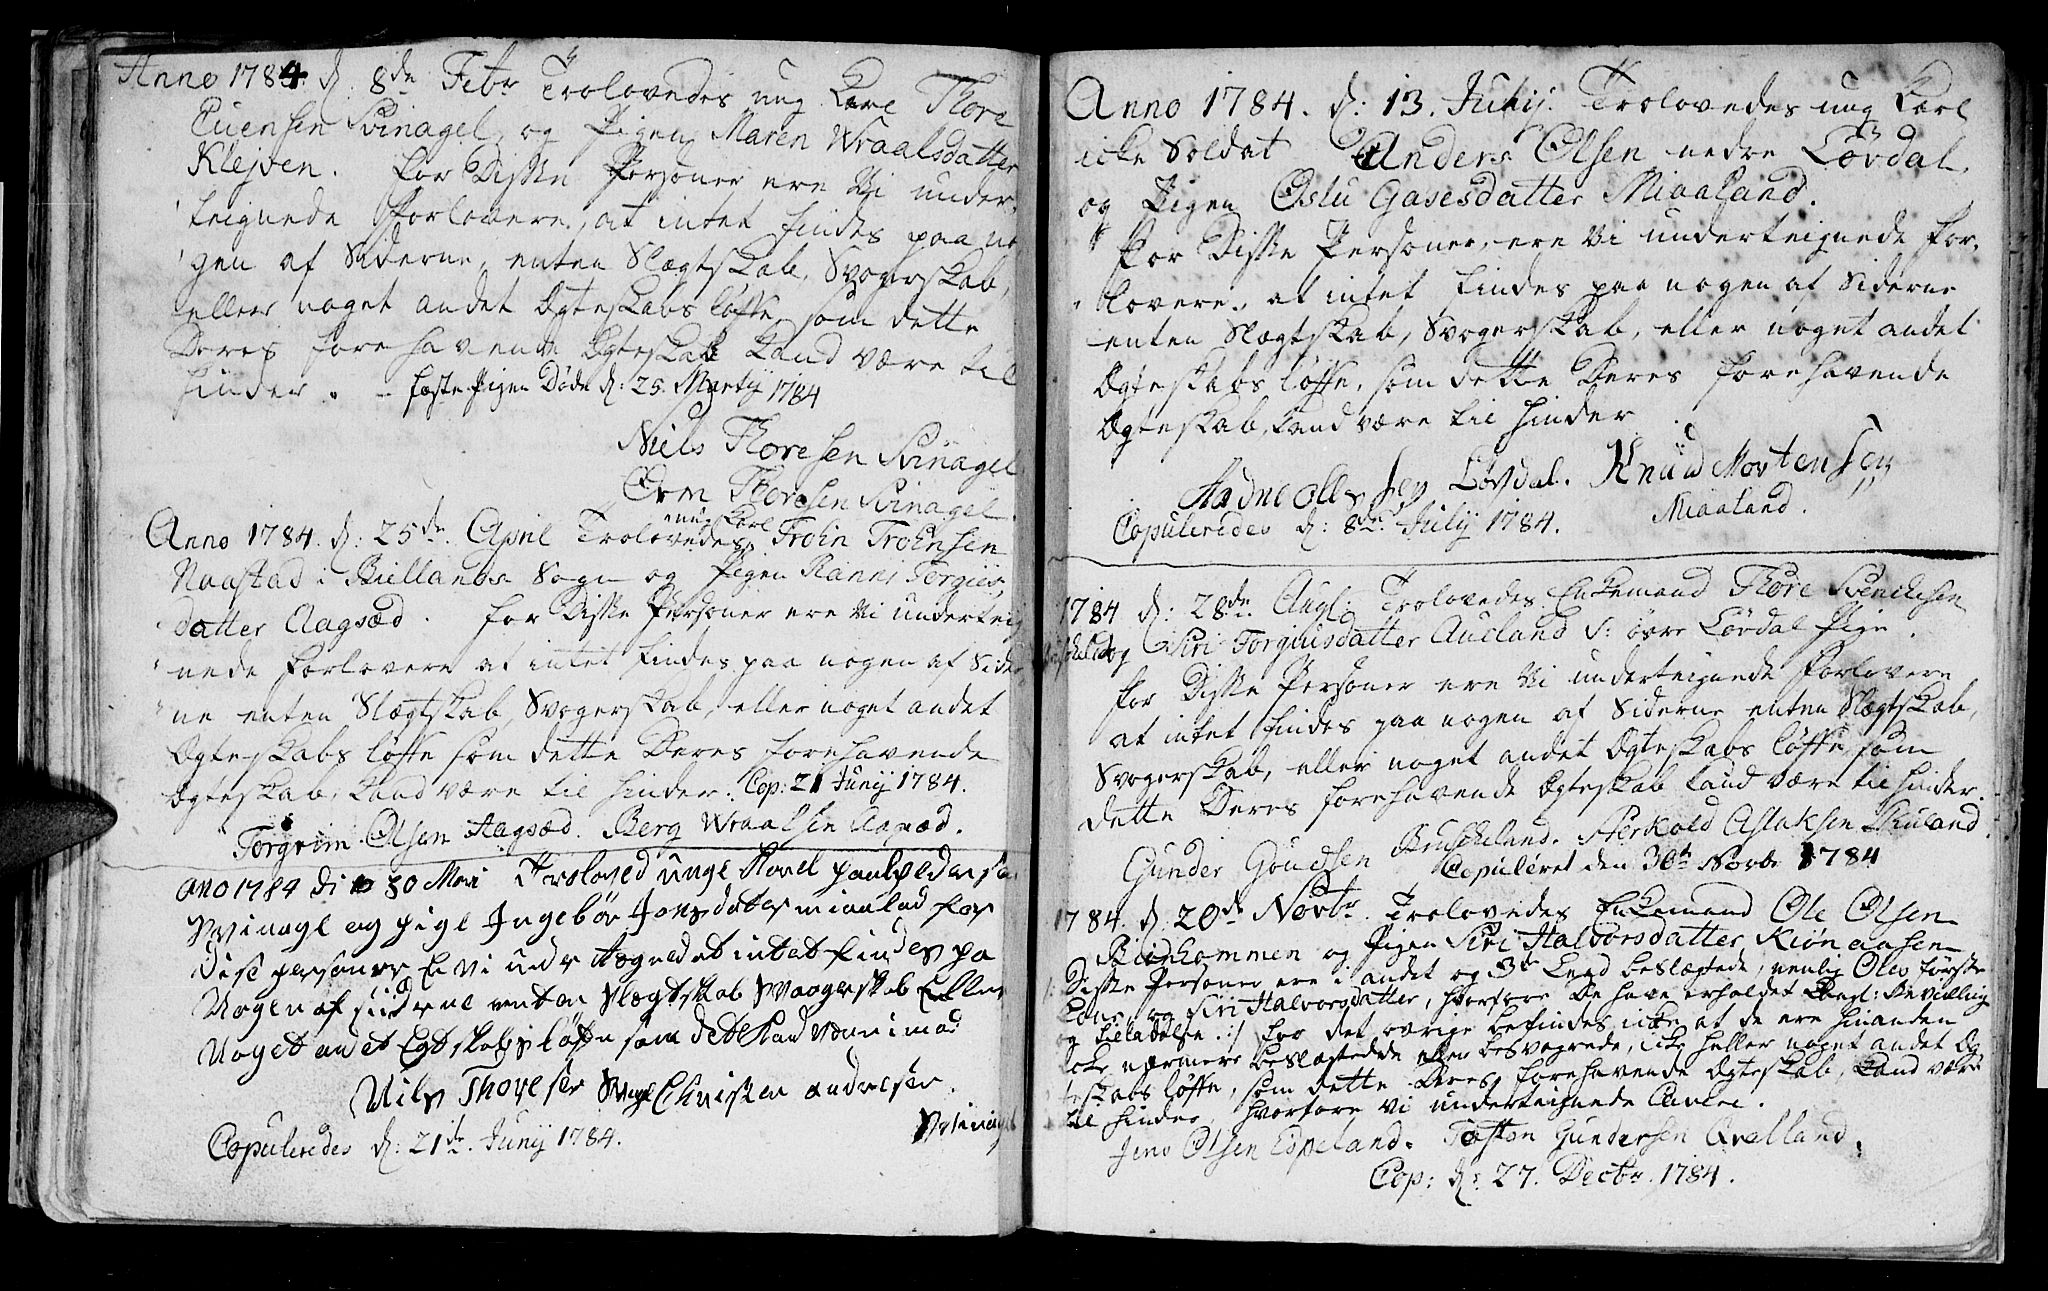 Anno 1784. d: 8de Febr Trolovedes ung Karl Thore
Euensen Svinagel, og Pigen Maren Wraalsdatter
Klejven. For Disse Personer ere Vi under-
teignede Forlovere, at intet findes paa no
gen af Siderne, enten Slægtskab, Svogerskab,
eller noget andet Ægteskabs løffte, som dette
Deres forehavende Ægteskab kand være til
hinder. - fæste Pigen Døde d: 25. Martij 1784
Niels Thoresen Svinagel
Orm Thoresen Svinagel
ung Karl
Anno 1784. d: 25de April Trolovedes Trohn Trohnsen
Naastad i Biellands Sogn og Pigen Ranni Torgiis
datter Aagsæd. For Disse Personer ere Vi underteig
nede Forlovere at intet findes paa nogen af Sider
ne enten Slægtskab, Svogerskab, eller noget andet
Ægteskabs løffte som dette Deres forehavende
Ægteskab, kand være til hinder. Cop: 21 Junij 1784.
Torgrim Olsen Aagsæd. Berg Wraalsen Aagsæd.
ano 1784 di 30 Mai Troloved unge Karel
og pige Ingebør Jonsdater miaalad for
dise personer Er vi under tegnedet intet findes pa
Nogen af siiderne enten slegtskab svaagerskab Eller
Noget andet Egtskabs løfte som dete kand være imod
Nils Thoresen Christen andresen
Svinagel
Copuleredes d: 21de Junij 1784.
Anno 1784. d: 13. Junij. Trolovedes ung Karl
icke Soldat Anders Olsen nedre Løvdal,
og Pigen Oslu Gasesdatter Miaaland.
For Disse Personer, ere Vi underteignede For-
lovere, at intet findes paa nogen af Siderne
enten Slægtskab, Svogerskab, eller noget andet
Ægteskabs løffte, som dette Deres forehavende
Ægteskab, kand være til hinder.
Aadne Ollssen Løvdal. Knuud Mortensen
Miaaland.
Copuleredes d: 8de Julij 1784.
1784 d: 28de Augl: Trolovedes Enkemand Thore Svenckesen
og Siri Torgiusdatter Aueland v: øvre Løvdal Pige.
For Disse Personer ere Vi underteignede Forlovere
at intet findes paa nogen af Siderne enten Slægtskab,
Svogerskab, eller noget andet Ægteskabs løffte, som
dette Deres forehavende Ægteskab kand være til hinder.
Gunder Goudsen Bruscheland. Aslaksen
Copuleret den 30te Novbr 1784
1784. d: 20de Novbr. Trolovedes Enkemand Ole Olsen
og Pigen Siri Halvorsdatter Kiønaasen
Disse Personer ere i andet og 3die Leed beslægtede, nemlig Oles første
Kone og Siri Halvorsdatter, hvorfore De have erholdet Kongl: Bevilling
og Tilladelse :/ for det øvrige befindes icke at de ere hinanden
beslægtede eller besvogrede, icke heller noget andet Æg
teskabs løffte, som dette Deres forehavende Ægteskab, kand være
til hinder, hvorfore Vi underteignede Cavere.
Jens Olsen Eopeland. Tosten Gundersen Qvelland.
Cop: d: 27. Decbr. 1784.